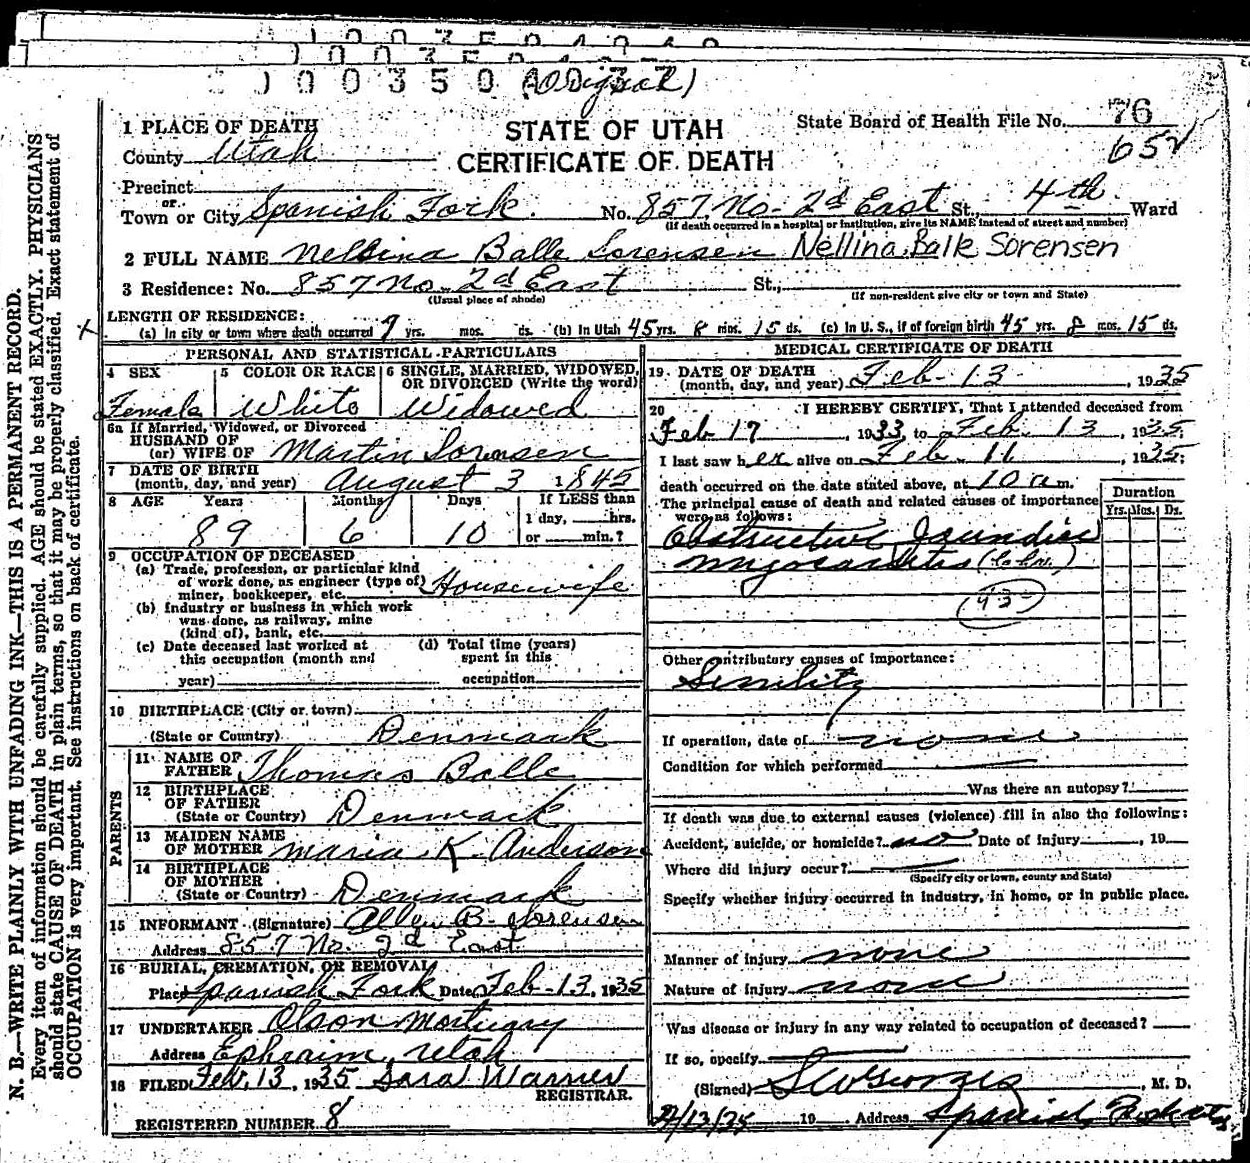 (Original)
0 0 3 5 0
1 PLACE OF DEATH
STATE OF UTAH
CERTIFICATE OF DEATH
State Board of Health File No. 76
652
County Utah
Precinct
or
Town or City Spanish Fork. No. 857. No. 2d East St., 4th Ward
(If death occurred in a hospital or institution, give its NAME instead of street and number)
2 FULL NAME Nellsina Balle Sorensen Nellina Balk Sorensen
3 Residence: No. 857 No. 2d East St.,
(Usual place of abode) (If non-resident give city or town and State)
LENGTH OF RESIDENCE:
(a) In city or town where death occurred 9 yrs. mos. ds. (b) In Utah 45 yrs. 8 mos. 15 ds. (c) In U. S., if of foreign birth 45 yrs. 8 mos. 15 ds.
PERSONAL AND STATISTICAL PARTICULARS
4 SEX 5 COLOR OR RACE 6 SINGLE, MARRIED, WIDOWED, OR DIVORCED (Write the word)
Female White Widowed
6a If Married, Widowed, or Divorced
HUSBAND OF
(or) WIFE OF Martin Sorensen
7 DATE OF BIRTH
(month, day, and year) August 3 1845
8 AGE Years Months Days If LESS than
89 6 10 1 day, hrs.
or min.?
9 OCCUPATION OF DECEASED
(a) Trade, profession, or particular kind
of work done, as engineer (type of)
miner, bookkeeper, etc. Housewife
(b) Industry or business in which work
was done, as railway, mine
(kind of), bank, etc.
(c) Date deceased last worked at
this occupation (month and
year)
(d) Total time (years)
spent in this
occupation
10 BIRTHPLACE (City or town)
(State or Country) Denmark
PARENTS
11 NAME OF
FATHER Thomas Balle
12 BIRTHPLACE
OF FATHER
(State or Country) Denmark
13 MAIDEN NAME
OF MOTHER Maria K. Anderson
14 BIRTHPLACE
OF MOTHER
(State or Country) Denmark
15 INFORMANT (Signature) B. Sorensen
Address 857 No. 2d East
16 BURIAL, CREMATION, OR REMOVAL
Place Spanish Fork Date Feb-13, 1935
17 UNDERTAKER Olson Mortuary
Address Ephraim, Utah
18 FILED Feb. 13, 1935 Sara Warner
REGISTRAR.
REGISTERED NUMBER 8
MEDICAL CERTIFICATE OF DEATH
19 DATE OF DEATH
(month, day, and year) Feb-13 , 1935
20 I HEREBY CERTIFY, That I attended deceased from
Feb 17 , 1933, to Feb. 13 , 1935;
I last saw her alive on Feb. 11 , 1935;
death occurred on the date stated above, at 10 a m.
The principal cause of death and related causes of importance
were as follows:
Duration
Yrs. Mos. Ds.
Obstructive Jaundice
Myocarditis
Other contributory causes of importance:
Senility
If operation, date of none
Condition for which performed
Was there an autopsy?
If death was due to external causes (violence) fill in also the following:
Accident, suicide, or homicide? no Date of injury , 19
Where did injury occur?
(Specify city or town, county and State)
Specify whether injury occurred in industry, in home, or in public place.
Manner of injury none
Nature of injury none
Was disease or injury in any way related to occupation of deceased?
If so, specify
(Signed) , M. D.
2/13/35 19 Address Spanish Fork
N. B.—WRITE PLAINLY WITH UNFADING INK—THIS IS A PERMANENT RECORD.
Every item of information should be carefully supplied. AGE should be stated EXACTLY. PHYSICIANS
should state CAUSE OF DEATH in plain terms, so that it may be properly classified. Exact statement of
OCCUPATION is very important. See instructions on back of certificate.